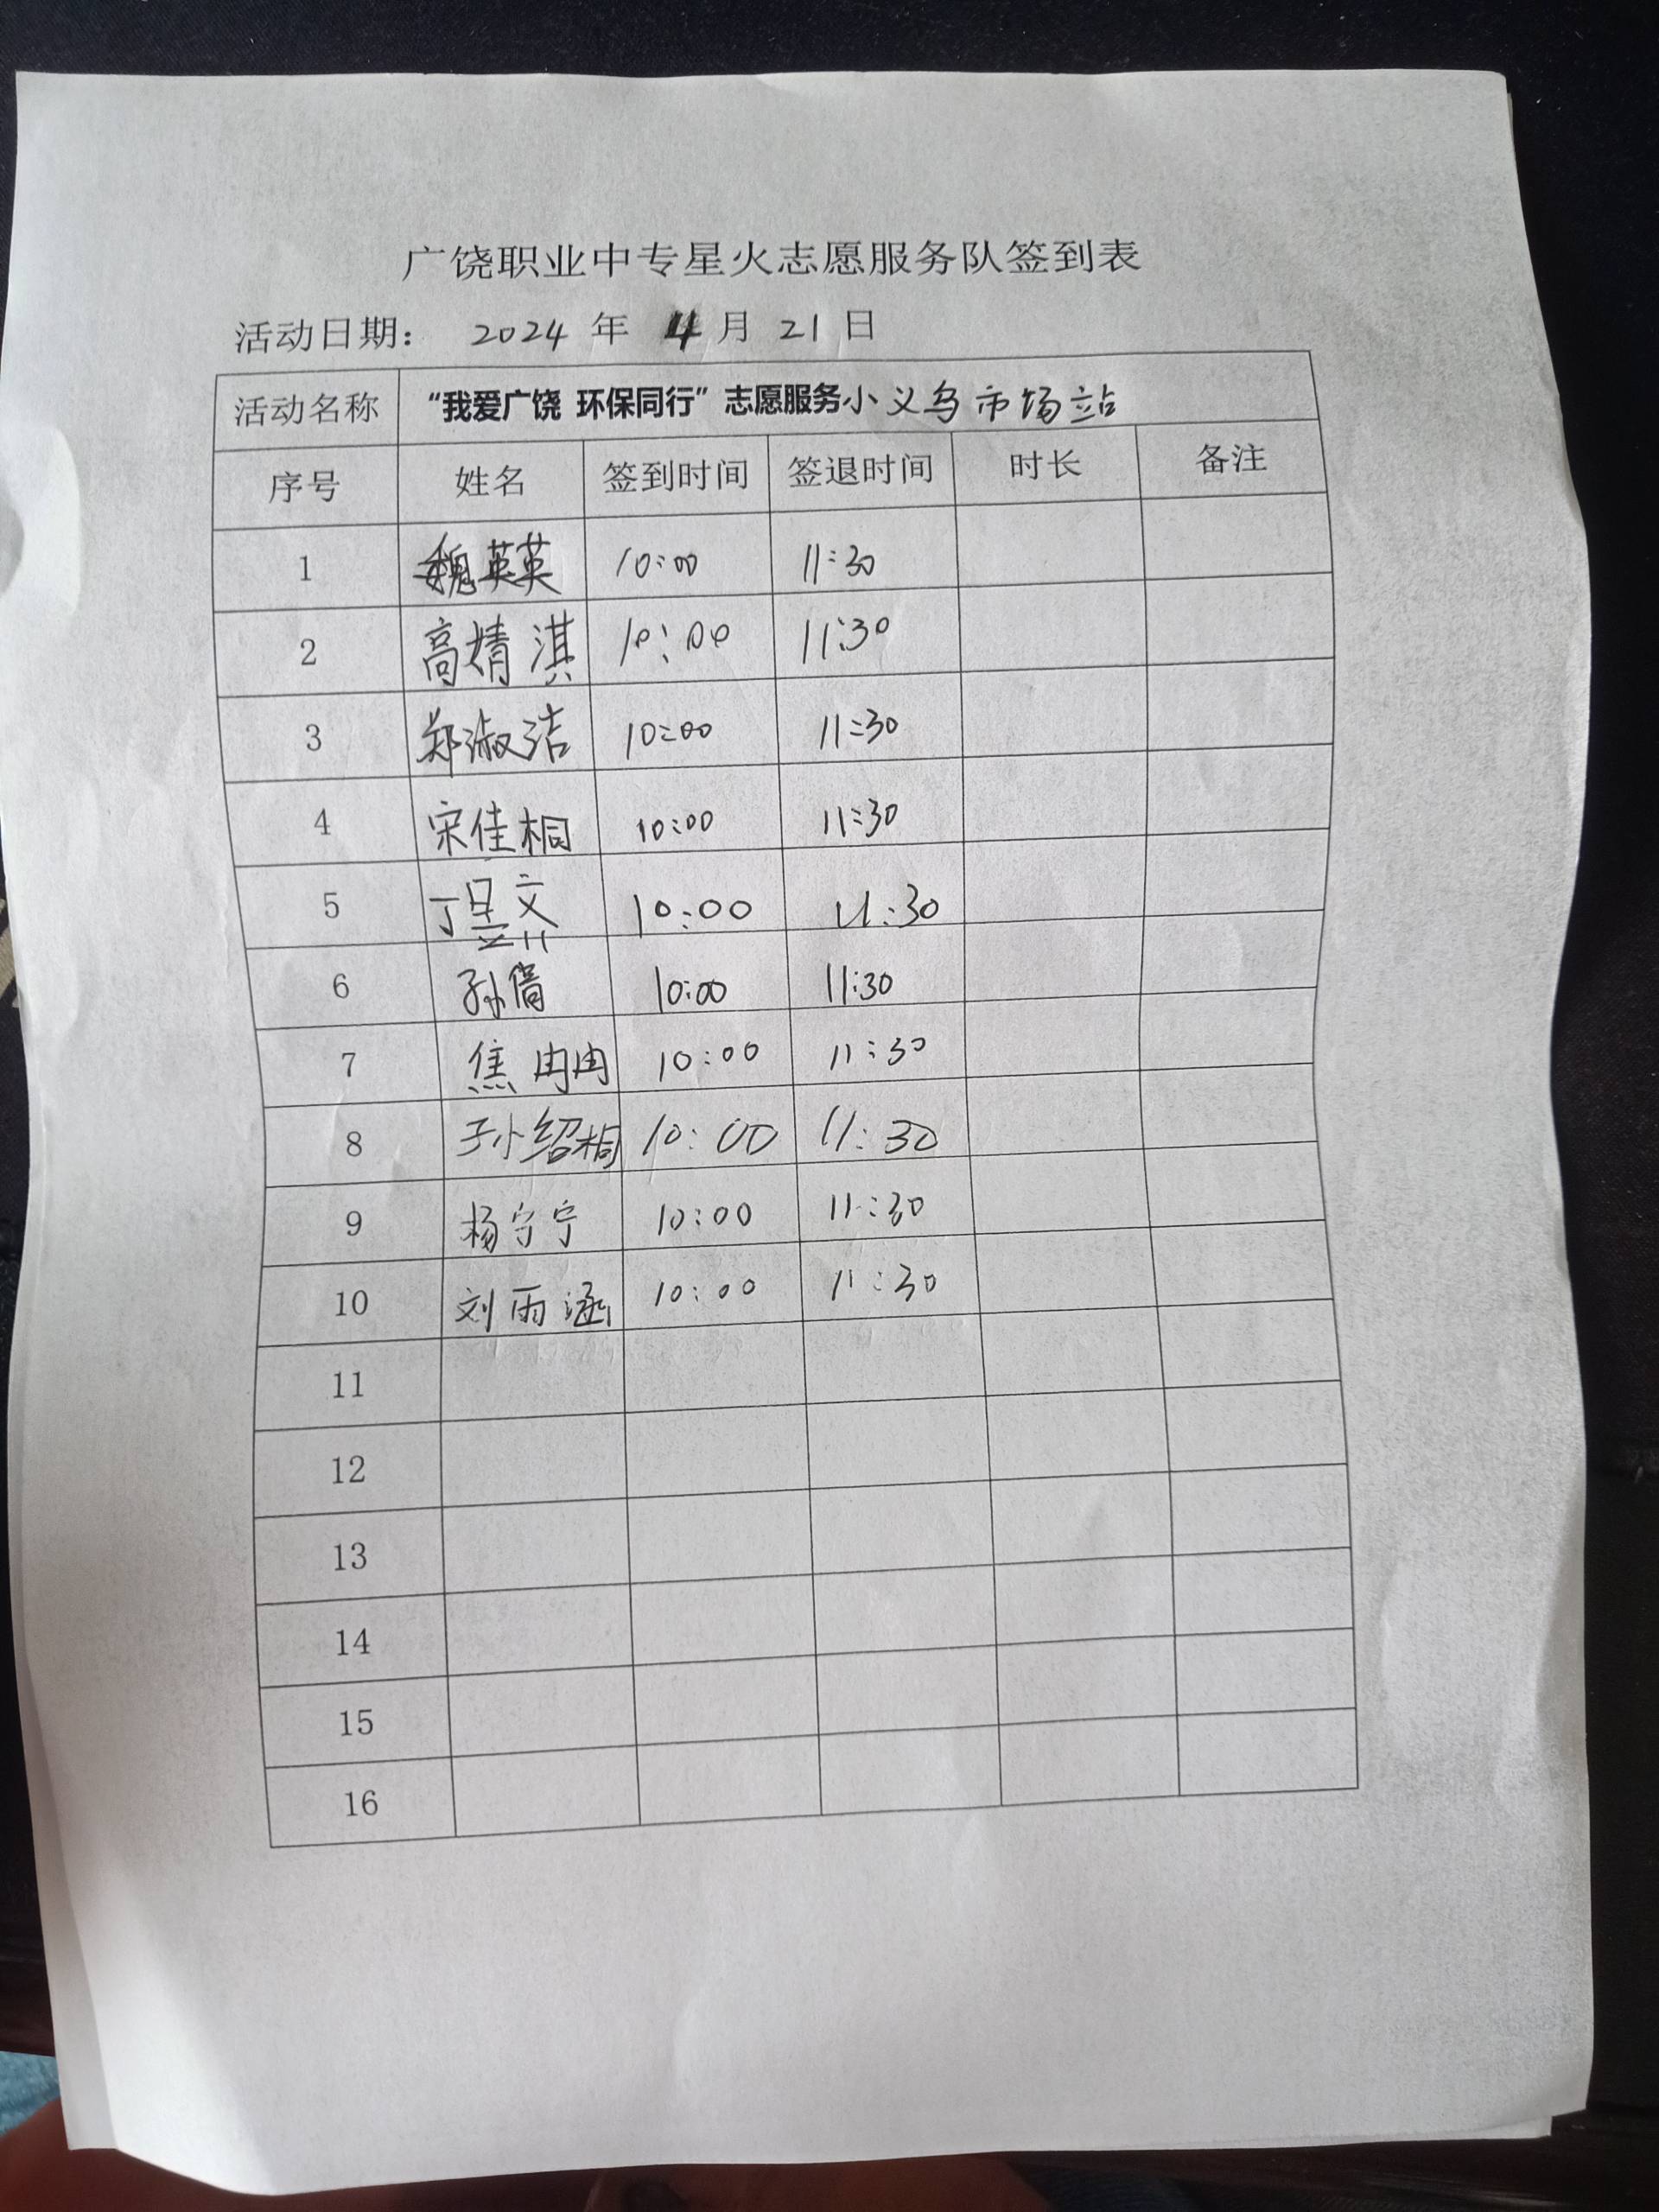 广饶职业中专星火志愿服务队签到表
活动日期： 2024 年 4 月 21 日
活动名称 “我爱广饶 环保同行”志愿服务小义乌市场站
序号 姓名 签到时间 签退时间 时长 备注
1 魏英英 10:00 11:30
2 高婧淇 10:00 11:30
3 郑淑洁 10:00 11:30
4 宋佳桐 10:00 11:30
5 丁昱文 10:00 11:30
6 孙倩 10:00 11:30
7 焦冉冉 10:00 11:30
8 孙绍桐 10:00 11:30
9 杨宁宁 10:00 11:30
10 刘雨涵 10:00 11:30
11
12
13
14
15
16